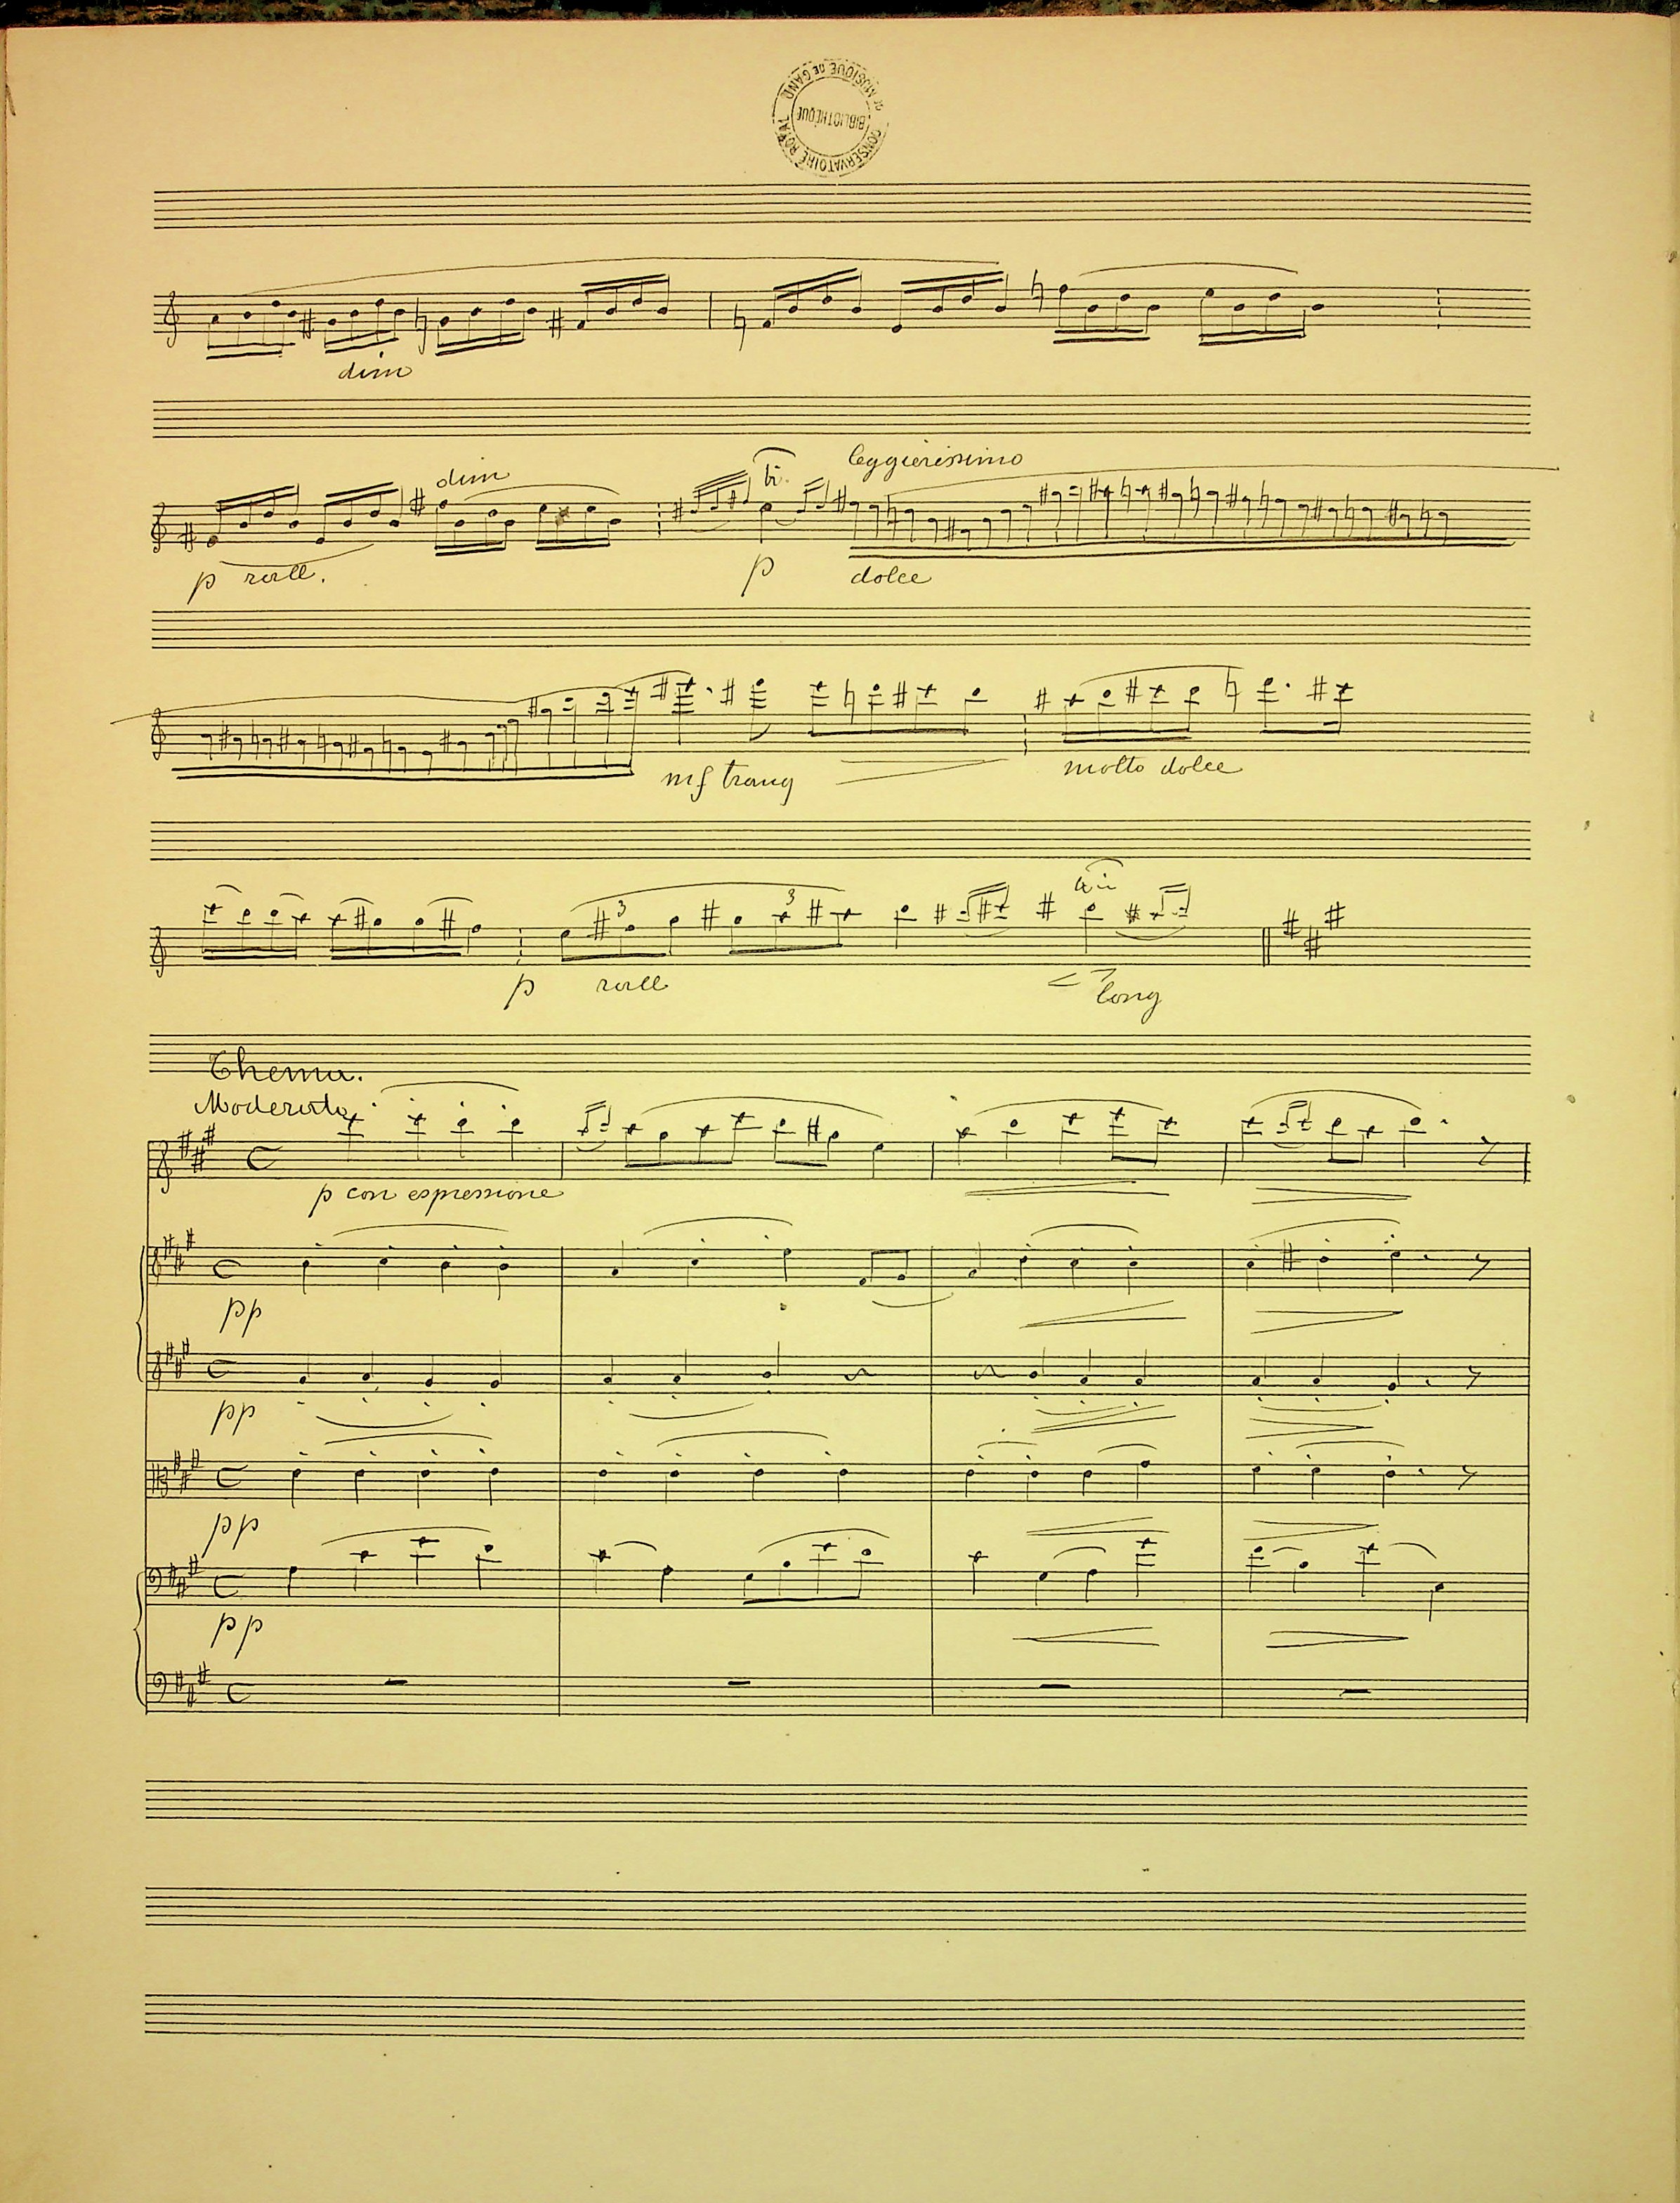 CONSERVATOIRE ROYAL DE MUSIQUE DE GAND
BIBLIOTHÈQUE
dim
dim
tr.
leggierissimo
p rall.
p
dolce
mf tranq
molto dolce
3
3
p
rall
long
Thema.
Moderato
p con espressione
pp
pp
pp
pp